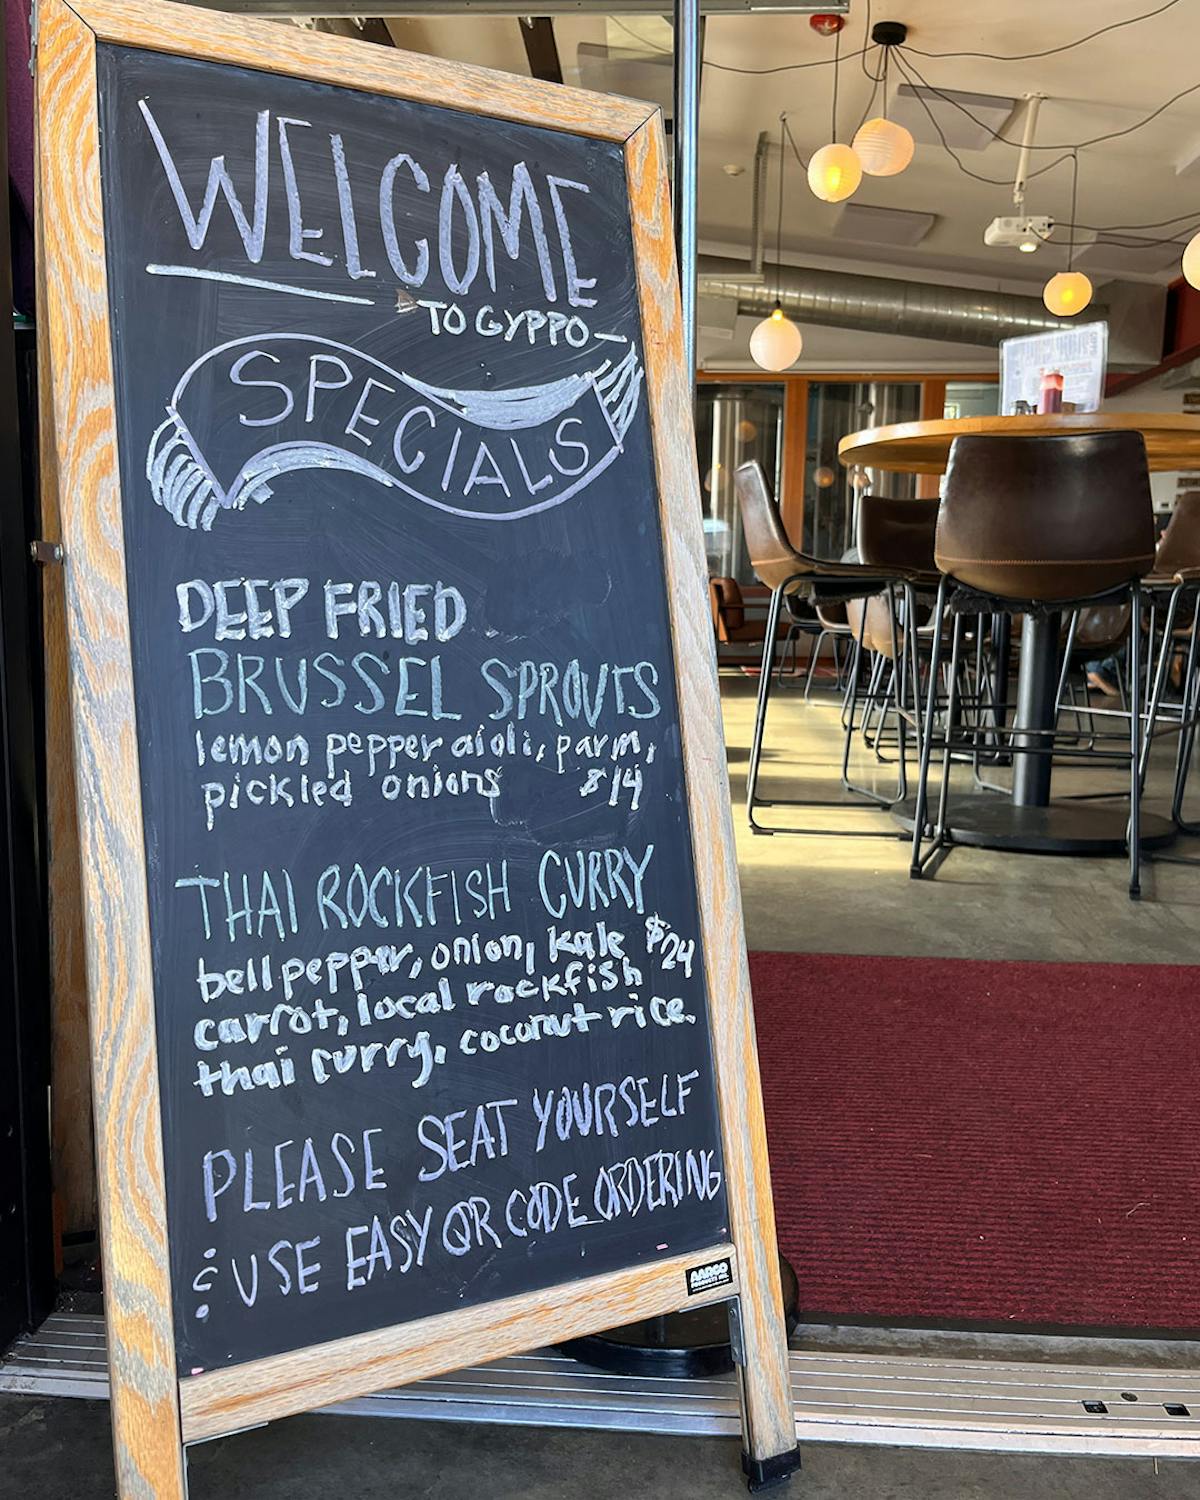 WELCOME
TO GYPPO
SPECIALS
DEEP FRIED
BRUSSEL SPROUTS
lemon pepper aioli, parm,
pickled onions $14
THAI ROCKFISH CURRY
bell pepper, onion, kale $24
carrot, local rockfish
thai curry, coconut rice.
PLEASE SEAT YOURSELF
& USE EASY QR CODE ORDERING
AARCO
PRODUCTS INC.